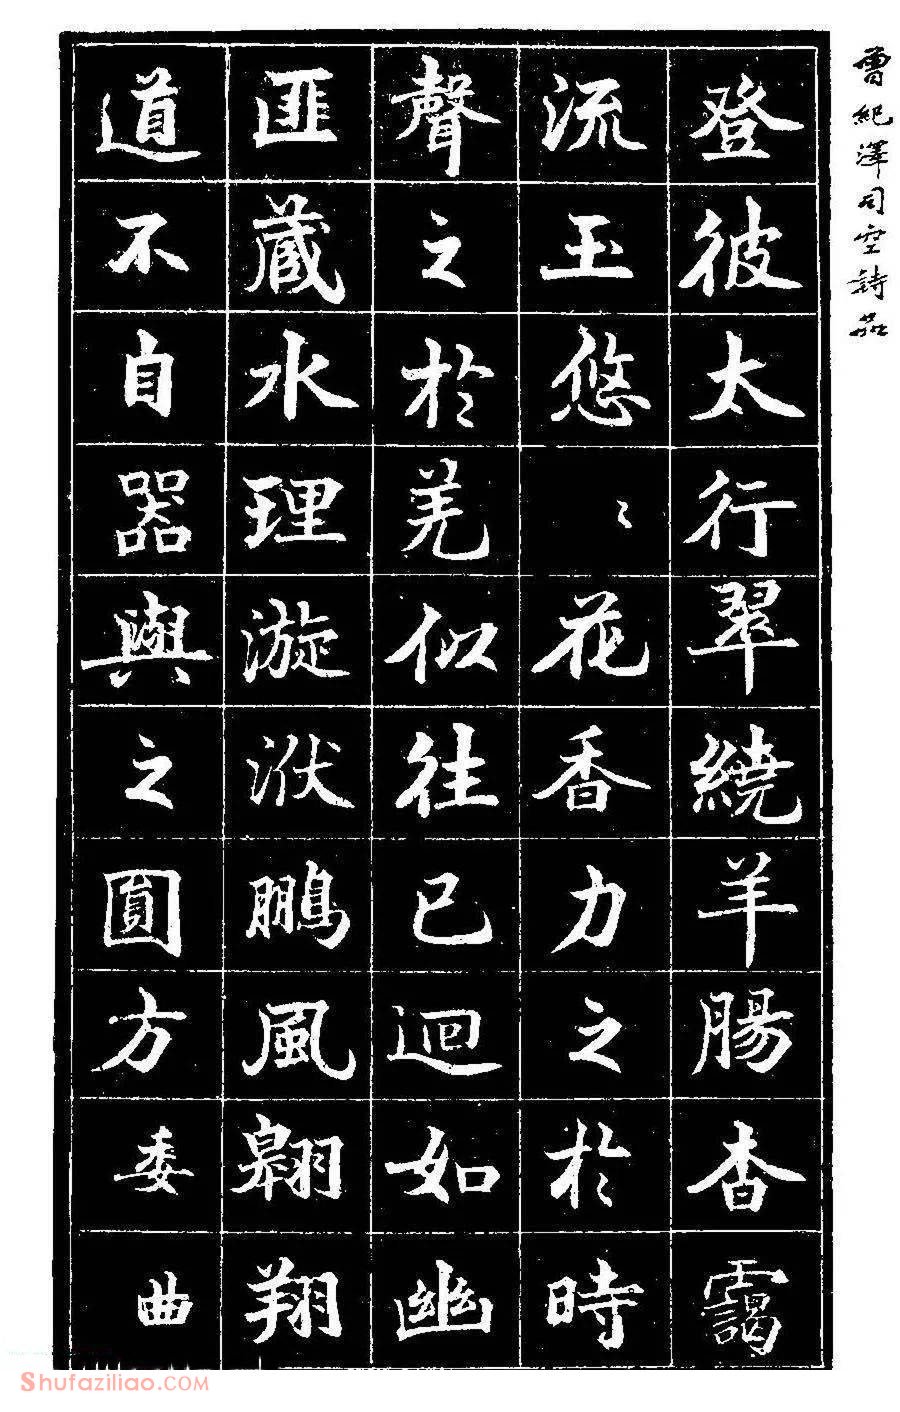 曾紀澤司空詩品
登彼太行翠繞羊腸杳靄
流玉悠〻花香力之於時
聲之於羌似往已迴如幽
匪藏水理漩洑鵬風翱翔
道不自器與之圓方
委曲
Shufaziliao.COM